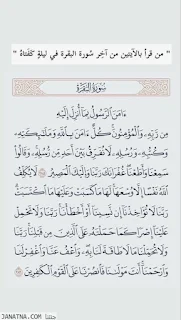 " من قرأ بالآيتين من آخر سُورة البقرة في ليلةٍ كَفَتَاهُ "
سُورَةُ البَقَرَةِ
ءَامَنَ ٱلرَّسُولُ بِمَآ أُنزِلَ إِلَيْهِ
مِن رَّبِّهِۦ وَٱلْمُؤْمِنُونَ كُلٌّ ءَامَنَ بِٱللَّهِ وَمَلَـٰٓئِكَتِهِۦ
وَكُتُبِهِۦ وَرُسُلِهِۦ لَا نُفَرِّقُ بَيْنَ أَحَدٍ مِّن رُّسُلِهِۦ وَقَالُوا۟
سَمِعْنَا وَأَطَعْنَا غُفْرَانَكَ رَبَّنَا وَإِلَيْكَ ٱلْمَصِيرُ ۝ لَا يُكَلِّفُ
ٱللَّهُ نَفْسًا إِلَّا وُسْعَهَا لَهَا مَا كَسَبَتْ وَعَلَيْهَا مَا ٱكْتَسَبَتْ
رَبَّنَا لَا تُؤَاخِذْنَآ إِن نَّسِينَآ أَوْ أَخْطَأْنَا رَبَّنَا وَلَا تَحْمِلْ
عَلَيْنَآ إِصْرًا كَمَا حَمَلْتَهُۥ عَلَى ٱلَّذِينَ مِن قَبْلِنَا رَبَّنَا
وَلَا تُحَمِّلْنَا مَا لَا طَاقَةَ لَنَا بِهِۦ وَٱعْفُ عَنَّا وَٱغْفِرْ لَنَا
وَٱرْحَمْنَآ أَنتَ مَوْلَىٰنَا فَٱنصُرْنَا عَلَى ٱلْقَوْمِ ٱلْكَـٰفِرِينَ ۝
JANATNA.COM جنتنا